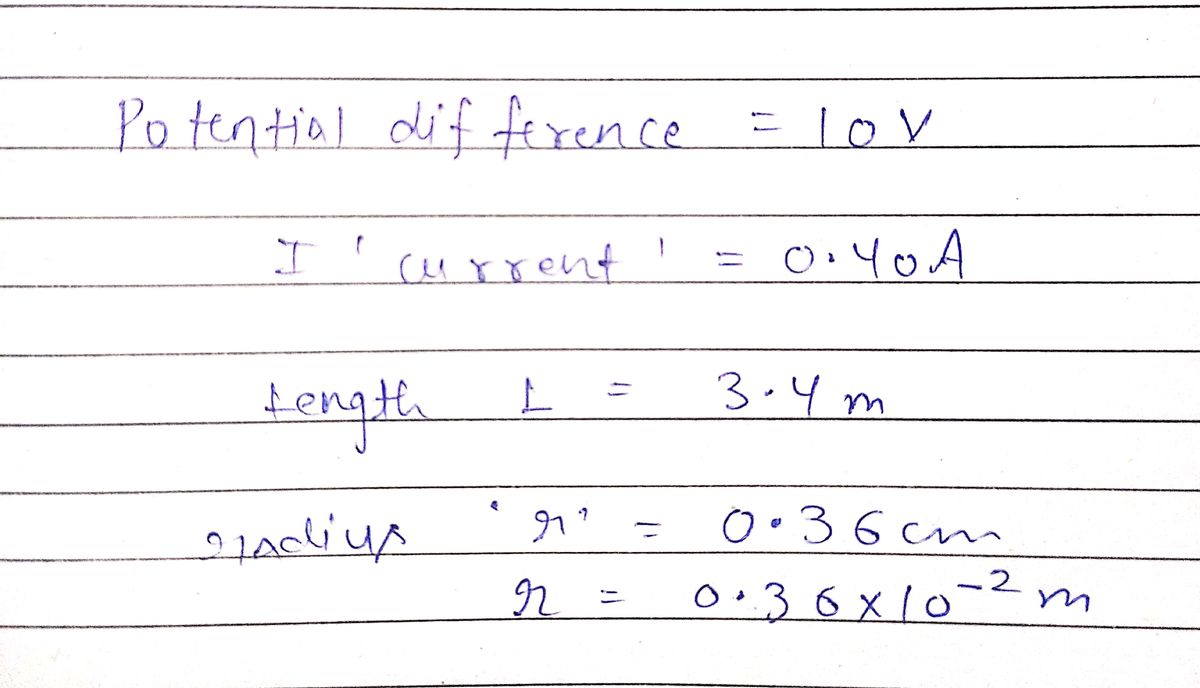 Potential difference = 10V
I 'current' = 0.40A
Length L = 3.4 m
radius 'r' = 0.36 cm
r = 0.36 x 10-2 m